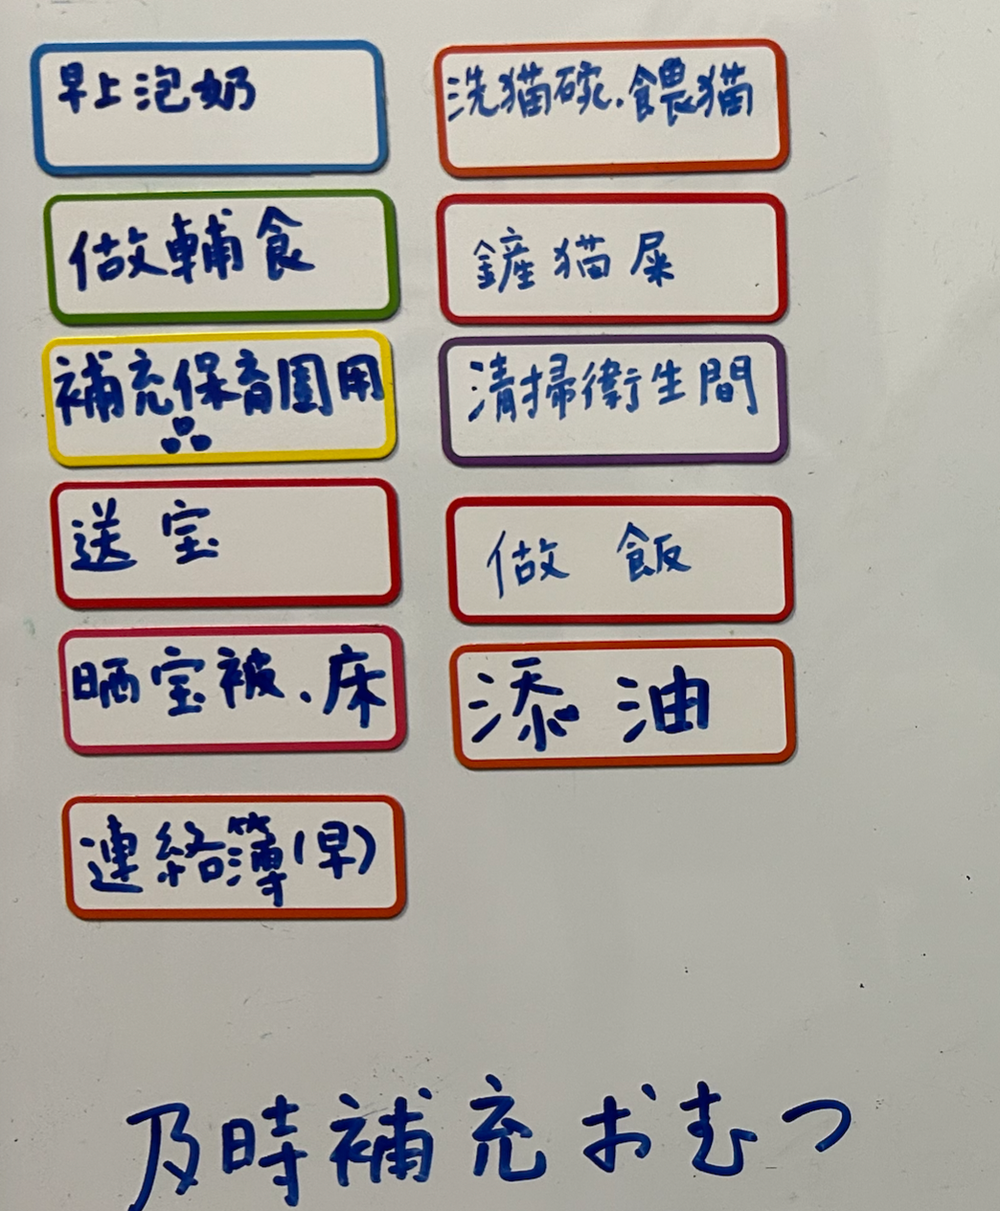 早上泡奶
做輔食
補充保育園用
品
送宝
晒宝被、床
連絡簿(早)
洗猫碗、餵猫
鏟猫屎
清掃衛生間
做飯
添油
及時補充おむつ